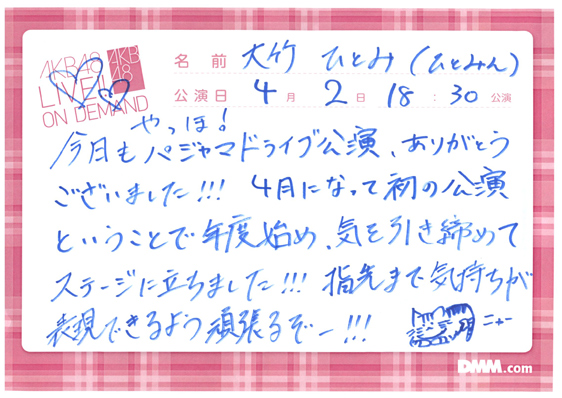 AKB48
LIVE!!
ON DEMAND
AKB
48
名前 大竹 ひとみ (ひとみん)
公演日 4月 2日 18:30 公演
やっほ!
今日もパジャマドライブ公演、ありがとう
ございました!!! 4月になって初の公演
ということで年度始め、気を引き締めて
ステージに立ちました!!! 指先まで気持ちが
表現できるよう頑張るぞー!!! ニャー
DMM.com